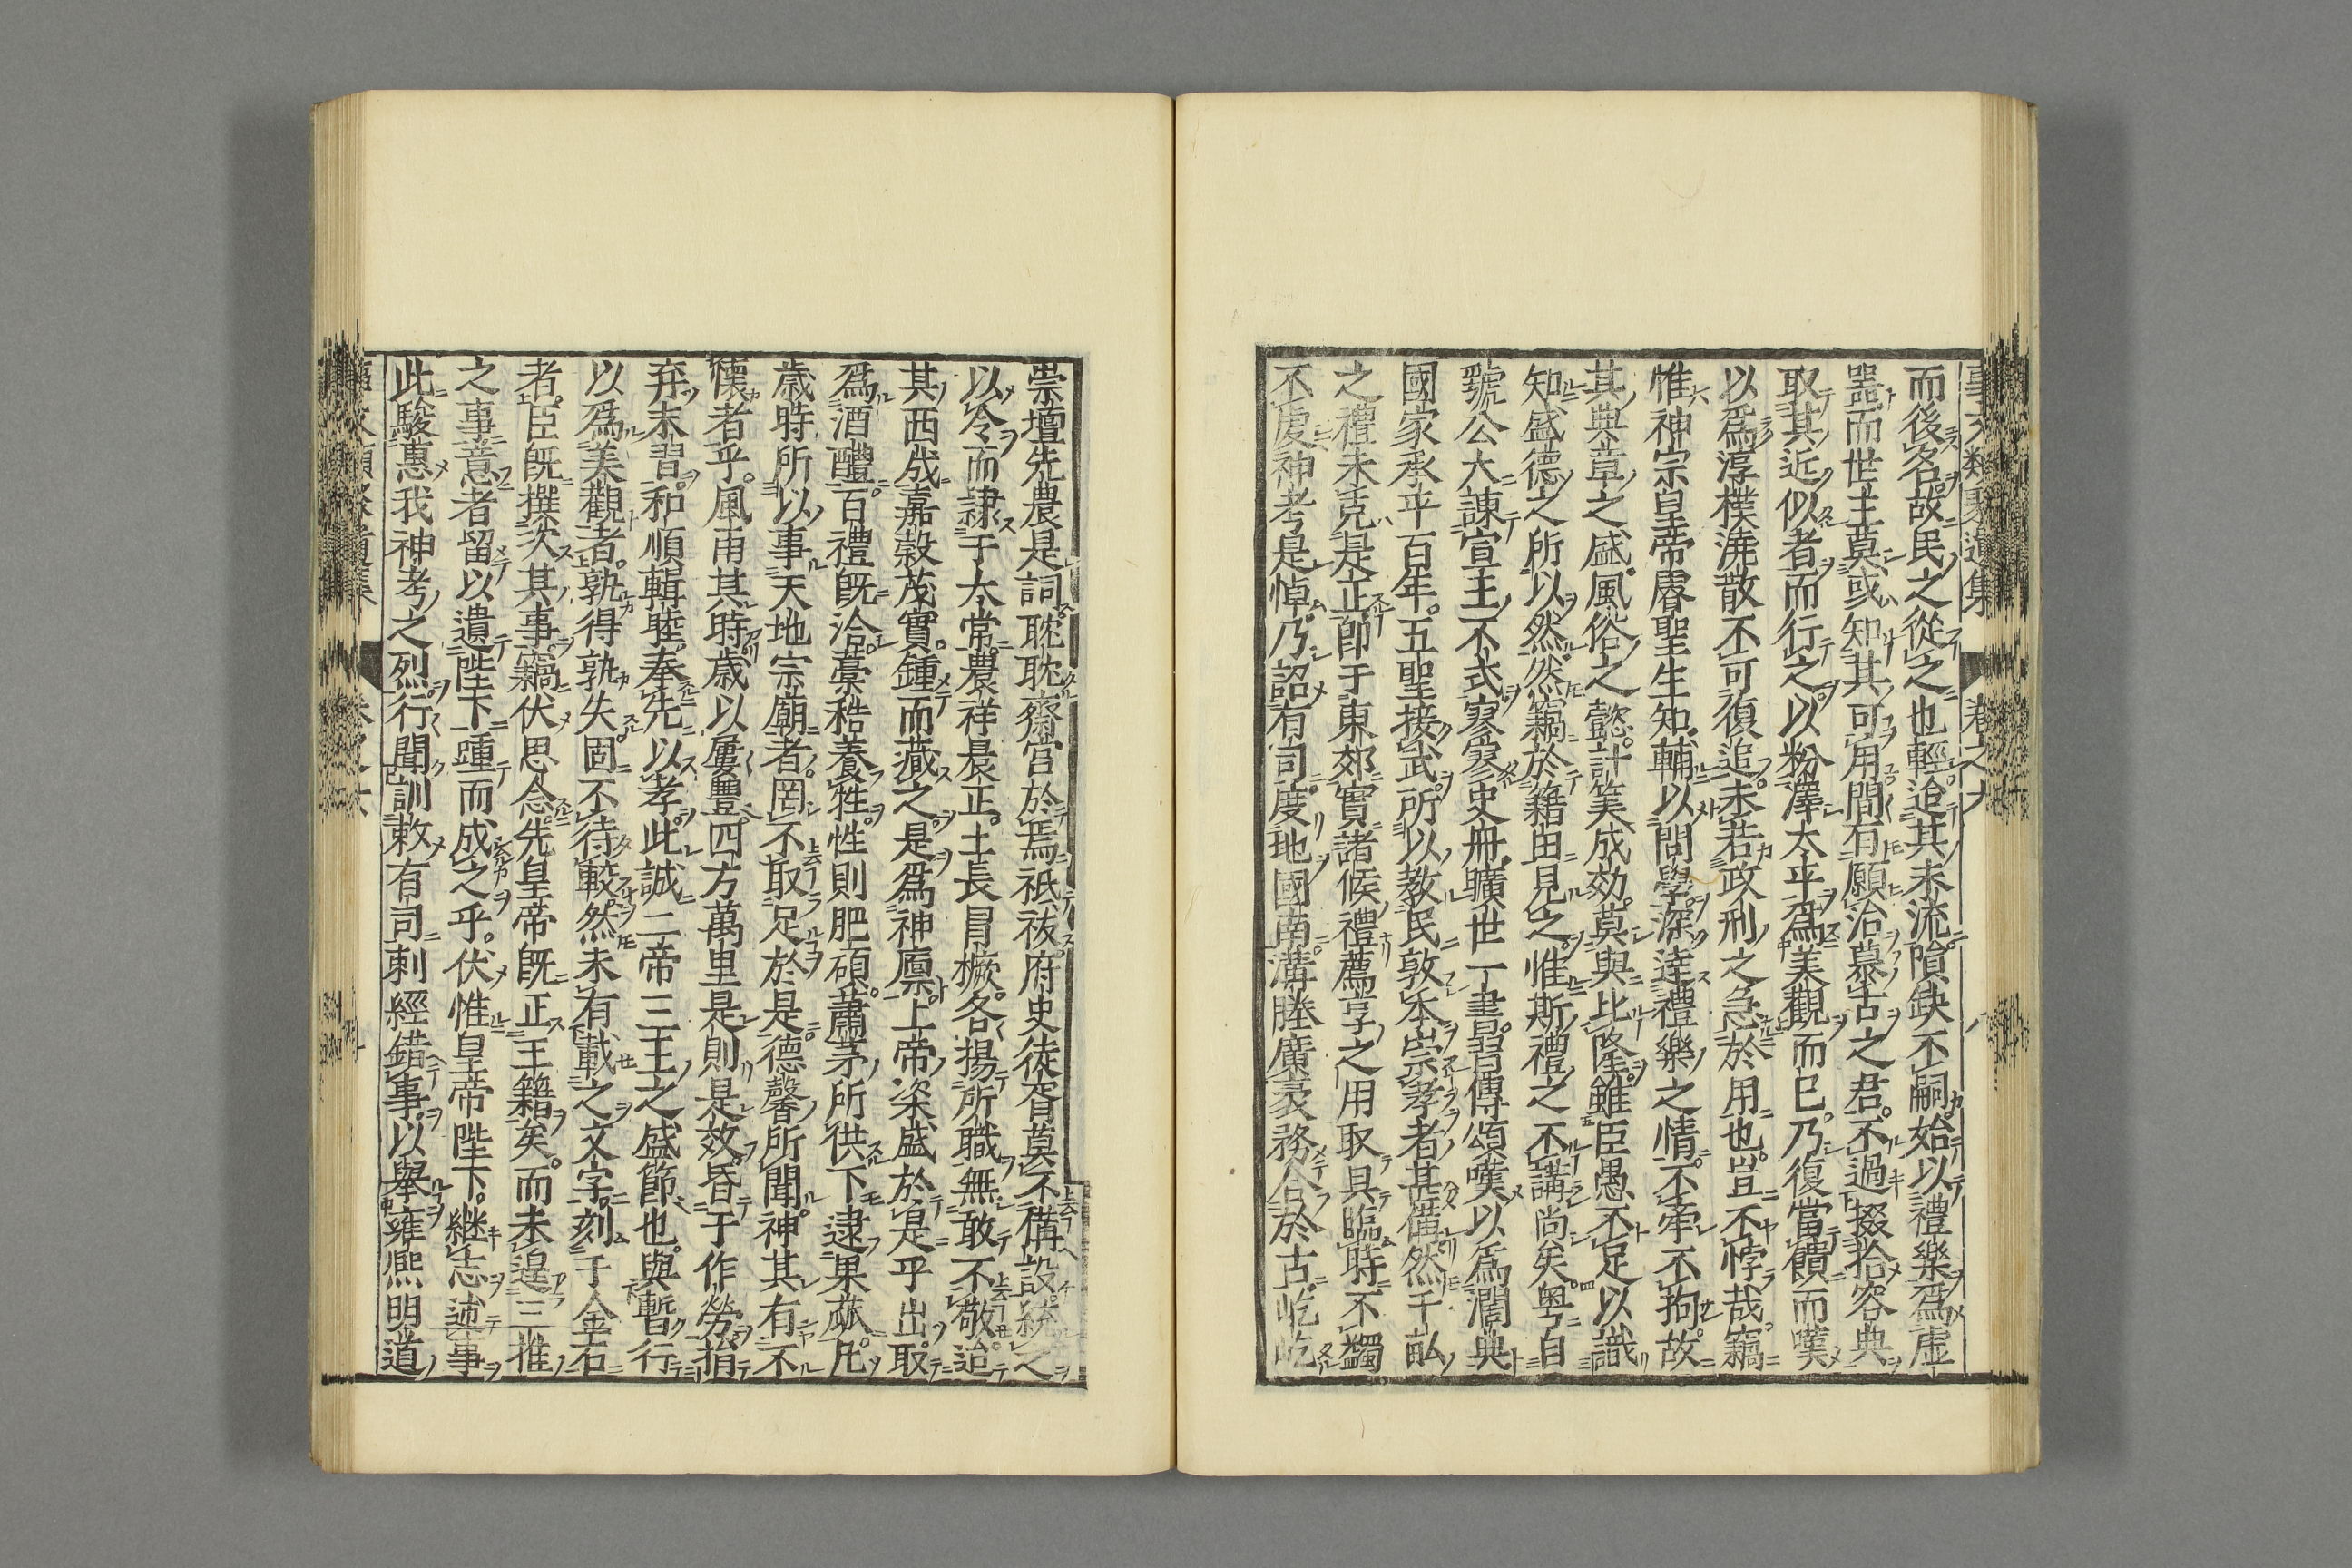 而後名故民之從之也輕迨其末流隙缺不嗣始以禮樂爲虛
器而世主莫或知其可用間有願治慕古之君不過掇拾容典
取其近似者而行之以粉澤太平爲美觀而已乃復當饋而嘆
以爲淳樸澆散不可復追未若政刑之急於用也豈不悖哉竊
惟神宗皇帝睿聖生知輔以問學深達禮樂之情不牽不拘故
其典章之盛風俗之懿計筭成効莫與比隆雖臣愚不足以識
知盛德之所以然然竊於籍田見之惟斯禮之不講尚矣粤自
虢公大諫宣王不式寥寥史冊曠世一書習傳頌嘆以爲濶典
國家承平百年五聖接武所以教民敦本崇孝者甚備然千畝
之禮未克是正卽于東郊實諸候禮薦享之用取具臨時不蠲
不虔神考是悼乃詔有司度地國南溝塍廣袤務合於古屹屹
崇壇先農是詞耽耽齋宮於焉祗祓府史徒胥莫不備設統之
以令而隷于太常農祥晨正土長冒橛各揚所職無敢不敬迨
其西成嘉穀茂實鍾而藏之是爲神廩上帝粢盛於是乎出取
爲酒醴百禮既洽藁秸養牲牲則肥碩蕭茅所供下逮果蓏凡
歳時所以事天地宗廟者罔不取足於是德馨所聞神其有不
懷者乎風雨其時歳以屢豐四方萬里是則是效昏于作勞捐
弃末習和順輯睦奉先以孝此誠二帝三王之盛節也與暫行
以爲美觀者孰得孰失固不待較然未有載之文字刻于金石
者臣旣撰次其事竊伏思念先皇帝旣正王籍矣而未遑三推
之事意者留以遺陛下踵而成之乎伏惟皇帝陛下継志述事
此駿惠我神考之烈行聞訓敕有司刺經錯事以舉雍熙明道